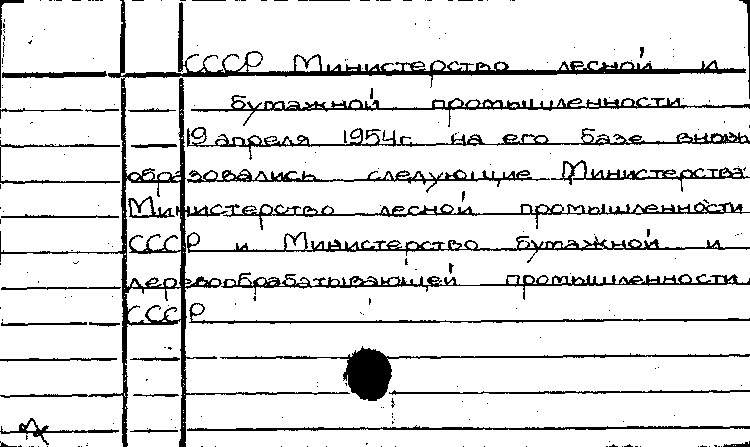 СССР Министерство лесной и
бумажной промышленности
19 апреля 1954г. на его базе вновь
образовались следующие Министерства
Министерство лесной промышленности
СССР и Министерство бумажной и
деревообрабатывающей промышленности
СССР